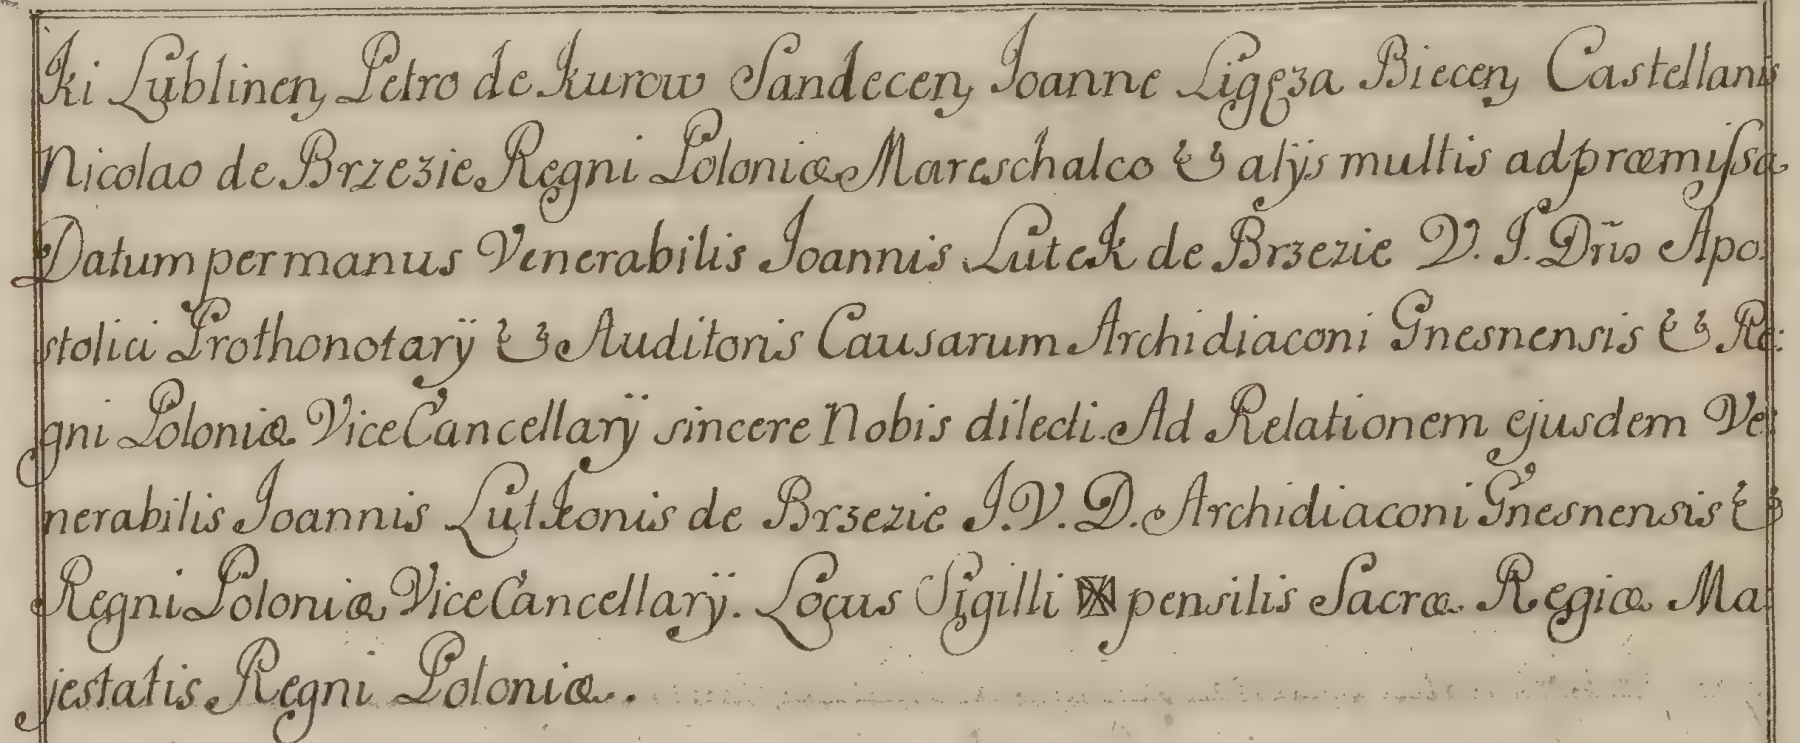 ki Lublinen, Petro de Kurow Sandecen, Joanne Ligęza Biecen, Castellanis
Nicolao de Brzezie Regni Poloniæ Mareschalco & alijs multis ad præmissa
Datum per manus Venerabilis Joannis Lutek de Brzezie V. J. Dris Apo:
stolici Prothonotarij & Auditoris Causarum Archidiaconi Gnesnensis & Re:
gni Poloniæ ViceCancellarij sincere Nobis dilecti. Ad Relationem ejusdem Ve:
nerabilis Joannis Lutkonis de Brzezie J. V. D. Archidiaconi Gnesnensis &
Regni Poloniæ ViceCancellarij. Locus Sigilli pensilis Sacræ Regiæ Ma:
jestatis Regni Poloniæ.